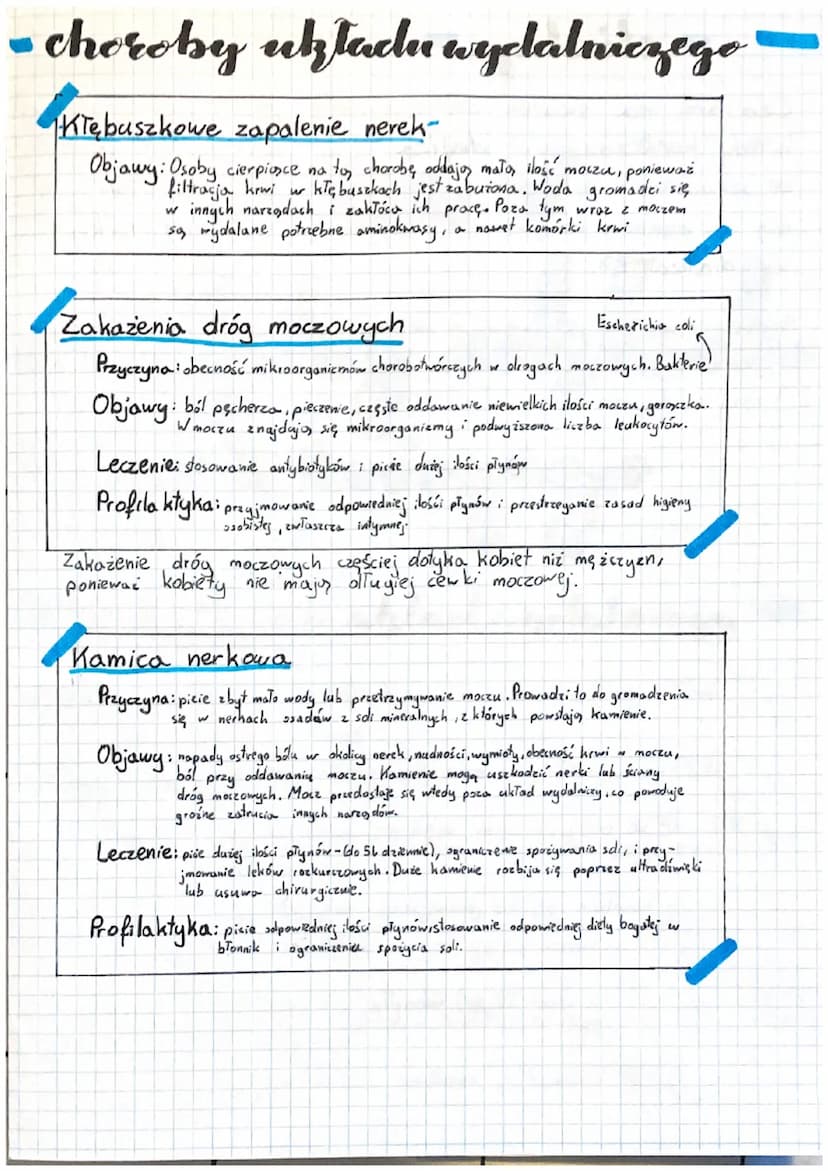 - choroby układu wydalniczego -
Kłębuszkowe zapalenie nerek-
Objawy: Osoby cierpiące na tą chorobę oddają małą ilość moczu, ponieważ
filtracja krwi w kłębuszkach jest zaburzona. Woda gromadzi się
w innych narządach i zakłóca ich pracę. Poza tym wraz z moczem
są wydalane potrzebne aminokwasy, a nawet komórki krwi
Zakażenia dróg moczowych
Escherichia coli
Przyczyna: obecność mikroorganizmów chorobotwórczych w drogach moczowych. Bakterie
Objawy: ból pęcherza, pieczenie, częste oddawanie niewielkich ilości moczu, gorączka.
W moczu znajdują się mikroorganizmy i podwyższona liczba leukocytów.
Leczenie: stosowanie antybiotyków i picie dużej ilości płynów
Profilaktyka: przyjmowanie odpowiedniej ilości płynów i przestrzeganie zasad higieny
osobistej, zwłaszcza intymnej.
Zakażenie dróg moczowych częściej dotyka kobiet niż mężczyzn,
ponieważ kobiety nie mają długiej cewki moczowej.
Kamica nerkowa
Przyczyna: picie zbyt mało wody lub przetrzymywanie moczu. Prowadzi to do gromadzenia
się w nerkach osadów z soli mineralnych, z których powstają kamienie.
Objawy: napady ostrego bólu w okolicy nerek, nudności, wymioty, obecność krwi w moczu,
ból przy oddawaniu moczu. Kamienie mogą uszkodzić nerki lub ściany
dróg moczowych. Mocz przedostaje się wtedy poza układ wydalniczy, co powoduje
groźne zatrucia innych narządów.
Leczenie: picie dużej ilości płynów-(do 5L dziennie), ograniczenie spożywania soli, i przy-
jmowanie leków rozkurczowych. Duże kamienie rozbija się poprzez ultradźwięki
lub usuwa chirurgicznie.
Profilaktyka: picie odpowiedniej ilości płynów, stosowanie odpowiedniej diety bogatej w
błonnik i ograniczenie spożycia soli.